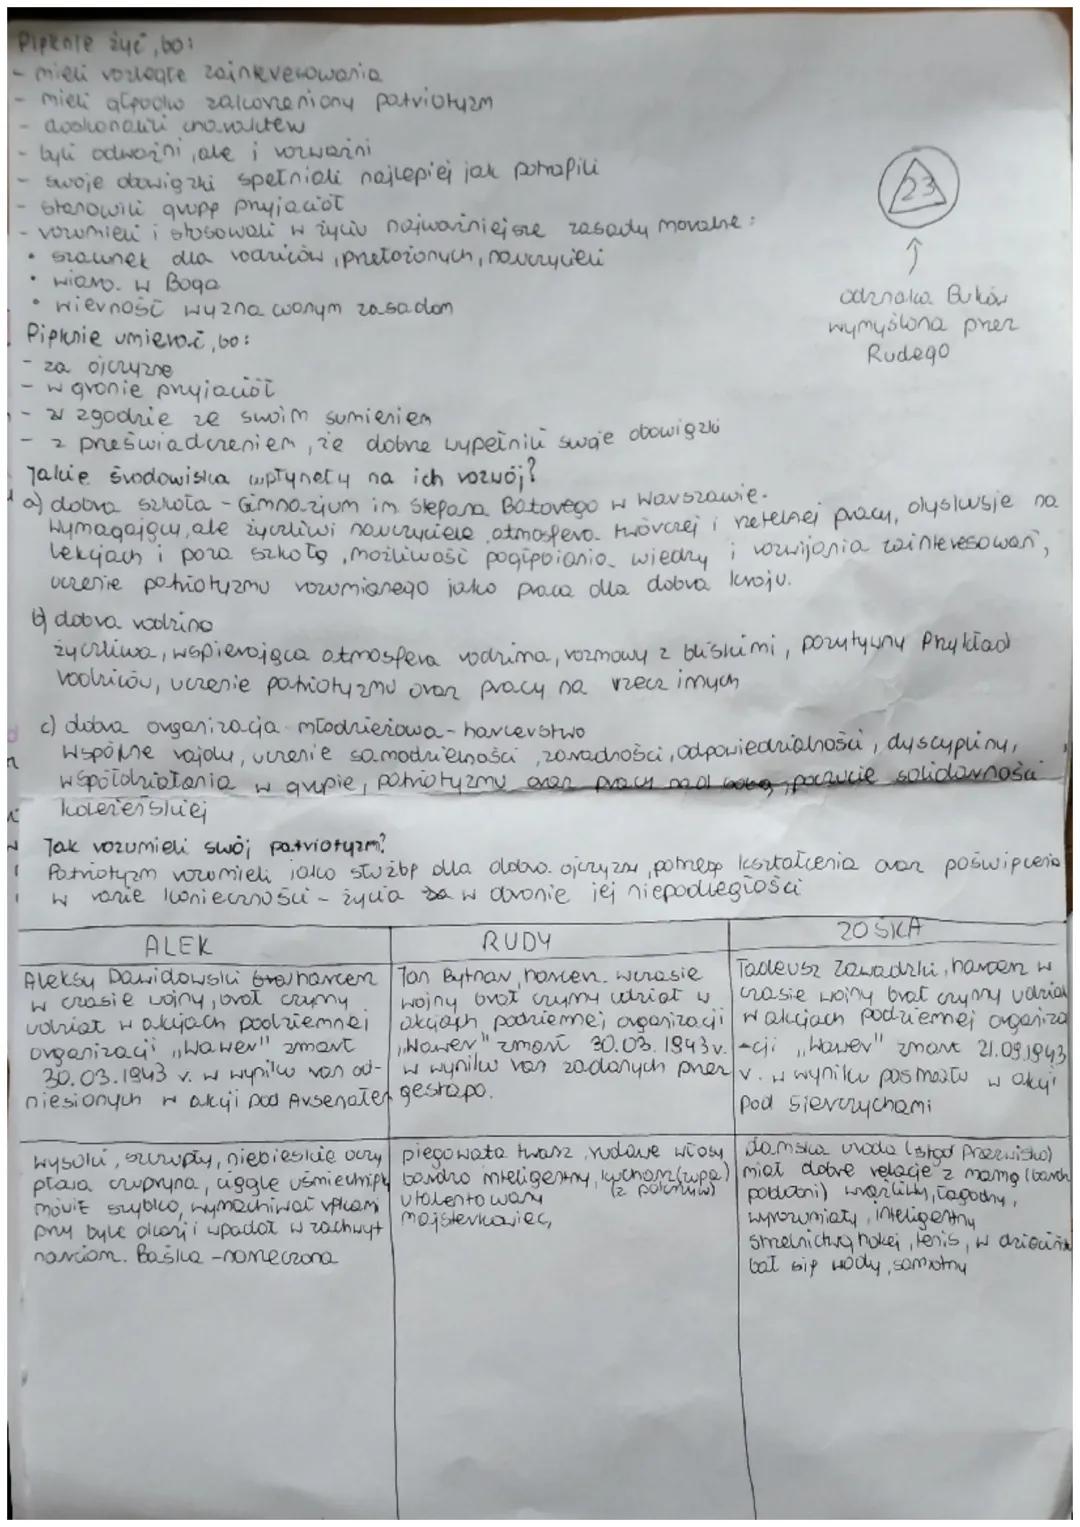 Pięknie żyć, bo:
- mieli rozległe zainteresowania
- mieli głęboko zakorzeniony patriotyzm
- doskonalili charakter
- byli odważni, ale i rozważni
- swoje obowiązki spełniali najlepiej jak potrafili
- stanowili grupę przyjaciół
- rozumieli i stosowali w życiu najważniejsze zasady moralne:
• szacunek dla rodziców, przełożonych, nauczycieli
• wiara w Boga
• wierność wyznawanym zasadom
23
↑
odznaka Buków
wymyślona przez
Rudego
Pięknie umierać, bo:
- za ojczyznę
- w gronie przyjaciół
- w zgodzie ze swoim sumieniem
- z przeświadczeniem, że dobrze wypełnili swoje obowiązki
Jakie środowiska wpłynęły na ich rozwój?
a) dobra szkoła - Gimnazjum im Stefana Batorego w Warszawie.
wymagający, ale życzliwi nauczyciele, atmosfera twórczej i rzetelnej pracy, dyskusje na
lekcjach i poza szkołą, możliwość pogłębiania wiedzy i rozwijania zainteresowań,
uczenie patriotyzmu rozumianego jako praca dla dobra kraju.
b) dobra rodzina
życzliwa, wspierająca atmosfera rodzinna, rozmowy z bliskimi, pozytywny przykład
rodziców, uczenie patriotyzmu oraz pracy na rzecz innych
c) dobra organizacja młodzieżowa - harcerstwo
wspólne rajdy, uczenie samodzielności, zaradności, odpowiedzialności, dyscypliny,
współdziałania w grupie, patriotyzmu oraz pracy nad sobą, poczucie solidarności
koleżeńskiej
Jak rozumieli swój patriotyzm?
Patriotyzm rozumieli jako służbę dla dobra ojczyzny, potrzebę kształcenia oraz poświęcenia
w razie konieczności - życia w obronie jej niepodległości
ALEK
RUDY
ZOŚKA
Aleksy Dawidowski harcerz
w czasie wojny, brał czynny
udział w akcjach podziemnej
organizacji "Wawer" zmarł
30.03.1943 r. w wyniku ran od-
niesionych w akcji pod Arsenałem
Jan Bytnar, harcerz. w czasie
wojny brał czynny udział w
akcjach podziemnej organizacji
"Wawer" zmarł 30.03.1943 r.
w wyniku ran zadanych przez
gestapo.
Tadeusz Zawadzki, harcerz w
czasie wojny brał czynny udział
w akcjach podziemnej organiza
-cji "Wawer" zmarł 21.09.1943
r. w wyniku postrzału w akcji
pod Sieczychami
wysoki, szczupły, niebieskie oczy
płowa czupryna, ciągle uśmiechnięty
mówił szybko, wymachiwał rękami
przy byle okazji wpadał w zachwyt
narciarz. Baśka - narzeczona
piegowata twarz, rudawe włosy
bardzo inteligentny, kucharz (zupa)
(z pokrzyw)
utalentowany
majsterkowicz,
damska uroda (stąd przezwisko)
miał dobre relacje z mamą (bardzo
podobni) wrażliwy, łagodny,
wyrozumiały, inteligentny
strzelnictwo, hokej, tenis, w dzieciństwie
bał się wody, samotny